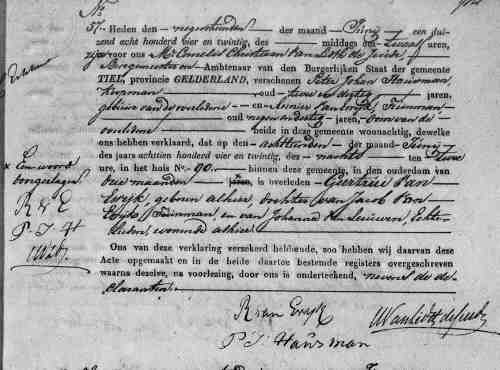 No
57. Heden den negentienden der maand Junij een dui-
zend acht honderd vier en twintig, des middags ten Twaalf uren,
zijn voor ons Mr Cornelis Christiaan van Lidt de Jeude,
Burgemeester Ambtenaar van den Burgerlijken Staat der gemeente
TIEL, provincie GELDERLAND, verschenen Pieter Johan Hausman
Koopman oud twee en dertig jaren,
gebuur van de overledene en van Ewijk, Tuinman
oud negen en dertig jaren, Oom van de
overledene beide in deze gemeente woonachtig, dewelke
ons hebben verklaard, dat op den achttienden der maand Junij
des jaars achttien honderd vier en twintig, des nachts ten Twee
ure, in het huis No. 90. binnen deze gemeente, in den ouderdom van
drie maanden jaren, is overleden Geertruy van
Ewijk, geboren alhier, dochter van Jacob van
Ewijk, Tuinman, en van Johanna van Leeuwen, Echte-
lieden, wonende alhier
Een woord
doorgeslagen
R v E
P. J. H
Ons van deze verklaring verzekerd hebbende, zoo hebben wij daarvan deze
Acte opgemaakt en in de beide daartoe bestemde registers overgeschreven
waarna dezelve, na voorlezing, door ons is onderteekend, nevens de de-
claranten.
R van Ewijk
P. J. Hausman
CC VanLidt deJeude